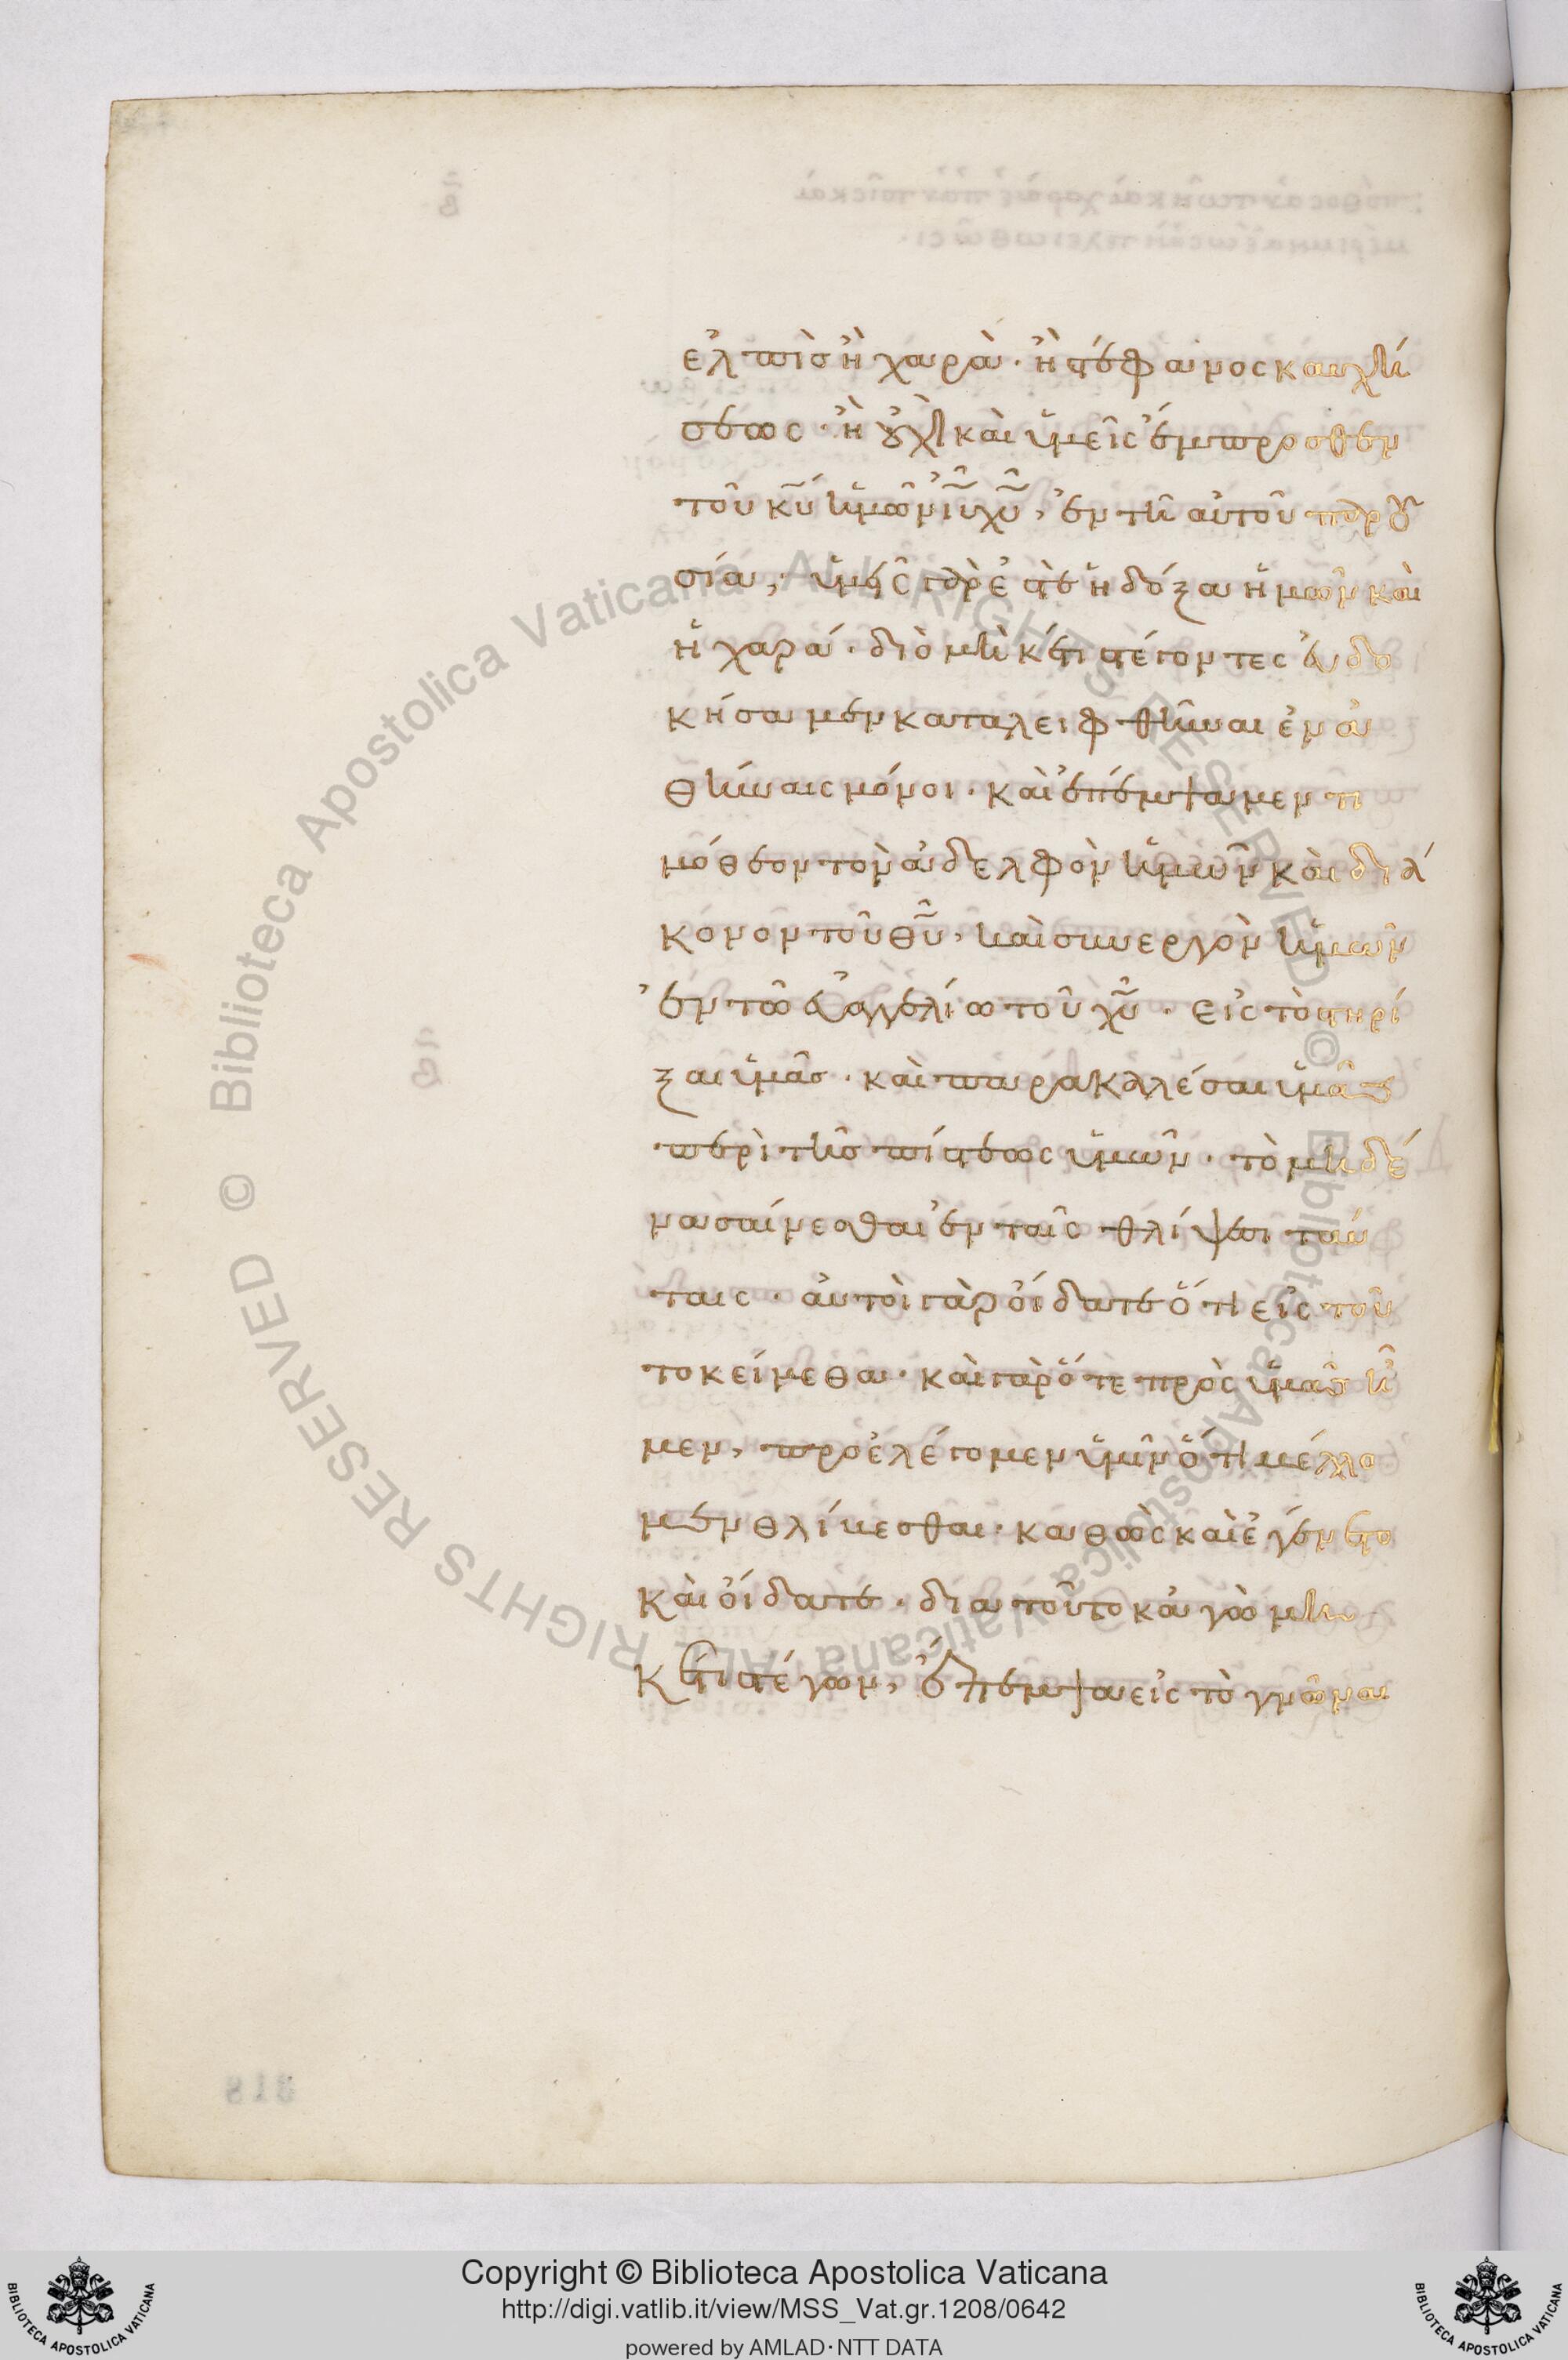 ἐλπὶς ἢ χαρὰ· ἢ στέφανος καυχή
σεως· ἢ οὐχὶ καὶ ὑμεῖς ἔμπροσθεν
τοῦ κῦ ἡμῶν ἰῦ χῦ, ἐν τῆ αὐτοῦ παρου
σία, ὑμεῖς γάρ ἐστε ἡ δόξα ἡμῶν καὶ
ἡ χαρά· διὸ μὴκέτι στέγοντες ἐυδο
κήσαμεν καταλειφθῆναι ἐν ἀ
θήναις μόνοι· καὶ ἐπέμψαμεν τι
μόθεον τὸν ἀδελφὸν ἡμῶν καὶ διά
κονον τοῦ θῦ, καὶ συνεργὸν ἡμῶν
ἐν τῶ ἐυαγγελίω τοῦ χῦ· εἰς τὸ στηρί
ξαι ὑμᾶς· καὶ παρακαλέσαι ὑμᾶς
περὶ τῆς πίστεως ὑμῶν· τὸ μηδέ
να σαίνεσθαι ἐν ταῖς θλίψεσι ταύ
ταις· ἀυτοὶ γὰρ οἴδατε ὅτι εἰς τοῦ
το κείμεθα· καὶ γὰρ ὅτε πρὸς ὑμᾶς ἦ
μεν, προελέγομεν ὑμῖν ὅτι μέλλο
μεν θλίβεσθαι· καθὼς καὶ ἐγένετο
καὶ οἴδατε· δια τοῦτο κἀγὼ μη
κέτι στέγων, ἔπεμψα εἰς τὸ γνῶναι
Copyright © Biblioteca Apostolica Vaticana
http://digi.vatlib.it/view/MSS_Vat.gr.1208/0642
powered by AMLAD·NTT DATA
BIBLIOTECA APOSTOLICA VATICANA
BIBLIOTECA APOSTOLICA VATICANA
© Biblioteca Apostolica Vaticana ALL RIGHTS RESERVED
© Biblioteca Apostolica Vaticana ALL RIGHTS RESERVED